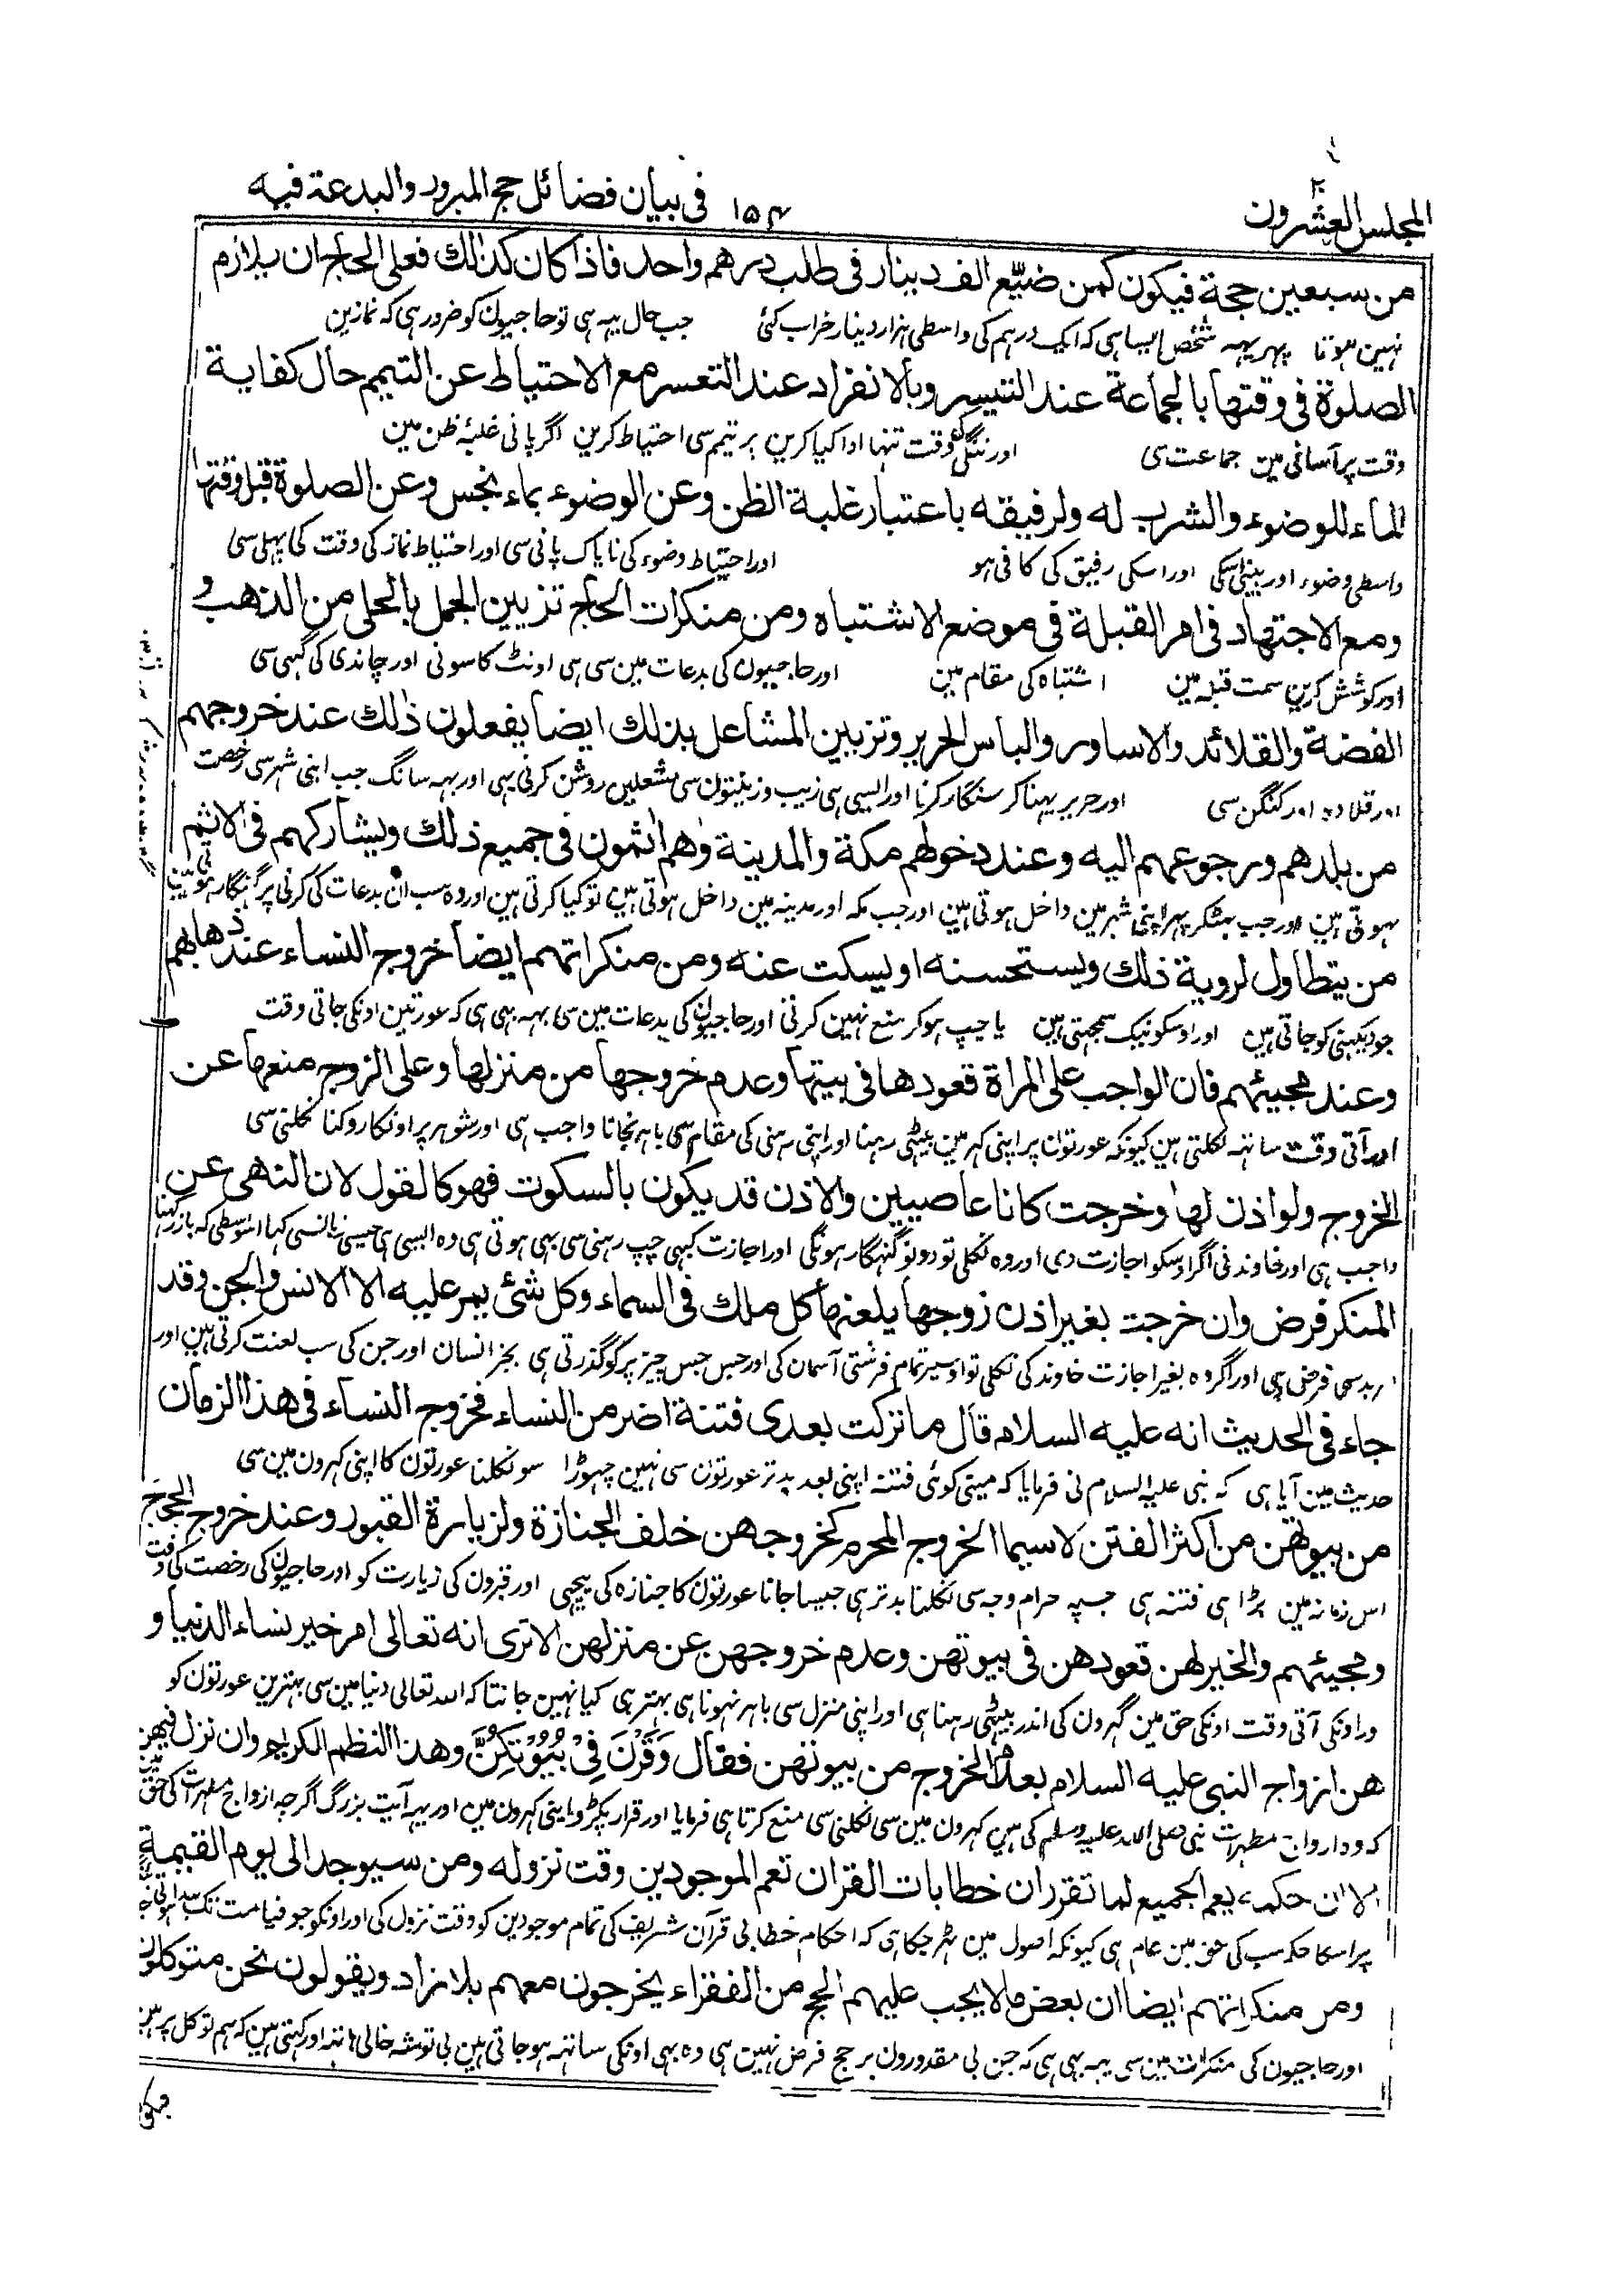 المجلس العشرون
۱۵۴
فى بيان فضائل حج المبرور والبدعة فيه
من سبعين حجة فيكون كمن ضيّع الف دينار فى طلب درهم واحد فاذا كان كذلك فعلى الحاج ان يلازم
نہین ہوتا پہر یہہ شخص ایسا ہی کہ ایک درہم کی واسطی ہزار دینار خراب کئی جب حال یہہ ہی تو حاجیون کو ضرور ہی کہ نمازین
الصلوة فى وقتها بالجماعة عند التيسر وبالانفراد عند التعسر مع الاحتياط عن التيمم حال كفاية
وقت پر آسانی مین جماعت سی اور تنگی وقت تنہا ادا کیا کرین پر تیمم سی احتیاط کرین اگر پانی غلبۂ ظن مین
الماء للوضوء والشرب له ولرفيقه باعتبار غلبة الظن وعن الوضوء بماء نجس وعن الصلوة قبل وقتها
واسطی وضوء اور پینی اسکی اور اسکی رفیق کی کافی ہو اور احتیاط وضوء کی ناپاک پانی سی اور احتیاط نماز کی وقت کی پہلی سی
ومع الاجتهاد فى امر القبلة فى موضع الاشتباه ومن منكرات الحاج تزيين الجمل بالحلى من الذهب و
اور کوشش کرین سمت قبلہ مین اشتباہ کی مقام مین اور حاجیون کی بدعات مین سی ہی اونٹ کا سونی اور چاندی کی گہنی سی
الفضة والقلائد والاساور والباس الحرير وتزيين المشاعل بذلك ايضا يفعلون ذلك عند خروجهم
اور قلادہ اور کنگن سی اور حریر پہنا کر سنگار کرنا اور ایسی ہی زیب و زینتون سی مشعلین روشن کرنی بہی اور یہہ سانگ جب اپنی شہر سی رخصت
من بلدهم ورجوعهم اليه وعند دخولهم مكة والمدينة وهم اٰثمون فى جميع ذلك ويشاركهم فى الاثم
ہوتی ہین اور جب ہٹکر پہر اپنی شہر مین داخل ہوتی ہین اور جب مکہ اور مدینہ مین داخل ہوتی ہین تو کیا کرتی ہین اور وہ سب ان بدعات کی کرنی پر گنہگار ہوتی ہین
من يتطاول لروية ذلك ويستحسنه او يسكت عنه ومن منكراتهم ايضا خروج النساء عند ذهابهم
جو دیکہنی کو جاتی ہین اور اوسکو نیک سمجہتی ہین یا چپ ہوکر منع نہین کرتی اور حاجیون کی بدعات مین سی یہہ بہی ہی کہ عورتین اونکی جاتی وقت
وعند مجيئهم فان الواجب على المراة قعودها فى بيتها وعدم خروجها من منزلها وعلى الزوج منعها عن
اور آتی وقت ساتہہ نکلتی ہین کیونکہ عورتون پر اپنی گہر مین بیٹہی رہنا اور اپنی رہنی کی مقام سی باہر نجانا واجب ہی اور شوہر پر اونکا روکنا نکلنی سی
الخروج ولو اذن لها وخرجت كانا عاصيين والاذن قد يكون بالسكوت فهو كالقول لان النهى عن
واجب ہی اور خاوند نی اگر اوسکو اجازت دی اور وہ نکلی تو دونو گنہگار ہونگی اور اجازت کبہی چپ رہنی سی بہی ہوتی ہی وہ ایسی ہی جیسی زبانسی کہا اسواسطی کہ باز رکہنا
المنكر فرض وان خرجت بغير اذن زوجها يلعنها كل ملك فى السماء وكل شئ يمر عليه الا الانس والجن وقد
بدسی فرض ہی اور اگر وہ بغیر اجازت خاوند کی نکلی تو اوسپر تمام فرشتی آسمان کی اور جس جس چیز پر کو گذرتی ہی بجز انسان اور جن کی سب لعنت کرتی ہین اور
جاء فى الحديث انه عليه السلام قال ما تركت بعدى فتنة اضر من النساء فخروج النساء فى هذا الزمان
حدیث مین آیا ہی کہ نبی علیہ السلام نی فرمایا کہ مینی کوئی فتنہ اپنی بعد بدتر عورتون سی نہین چہوڑا سو نکلنا عورتون کا اپنی گہرون مین سی
من بيوتهن من اكثر الفتن لا سيما الخروج المحرم كخروجهن خلف الجنازة ولزيارة القبور وعند خروج الحجاج
اس زمانہ مین بڑا ہی فتنہ ہی حرام وجہ سی نکلنا بدتر ہی جیسا جانا عورتون کا جنازہ کی پیچہی اور قبرون کی زیارت کو اور حاجیون کی رخصت کی وقت
ومجيئهم والخير لهن قعودهن فى بيوتهن وعدم خروجهن عن منزلهن الا ترى انه تعالى امر خير نساء الدنيا و
اور اونکی آتی وقت اونکی حق مین گہرون کی اندر بیٹہی رہنا ہی اور اپنی منزل سی باہر نہونا ہی بہتر ہی کیا نہین جانتا کہ اللہ تعالی دنیا مین سی بہترین عورتون کو
هن ازواج النبى عليه السلام بعدم الخروج من بيوتهن فقال وَقَرْنَ فِىْ بُيُوْتِكُنَّ وهذا النظم الكريم وان نزل فيهن
کہ وہ ازواج مطہرات نبی صلی اللہ علیہ وسلم کی ہین گہرون مین سی نکلنی سی منع کرتا ہی فرمایا اور قرار پکڑو اپنی گہرون مین اور یہہ آیت بزرگ اگرچہ ازواج مطہرات کی حق مین
الا ان حكمه يعم الجميع لما تقرر ان خطابات القران تعم الموجودين وقت نزوله ومن سيوجد الى يوم القيمة
پر اسکا حکم سب کی حق مین عام ہی کیونکہ اصول مین ٹہر چکا ہی کہ احکام خطابی قرآن شریف کی تمام موجودین کو وقت نزول کی اور اونکو جو قیامت تک پیدا
ومن منكراتهم ايضا ان بعض ما لا يجب عليهم الحج من الفقراء يخرجون معهم بلا زاد ويقولون نحن متوكلون
اور حاجیون کی منکرات مین سی یہہ بہی ہی کہ جن بی مقدورون پر حج فرض نہین ہی وہ بہی اونکی ساتہہ ہو جاتی ہین بی توشہ خالی ہاتہہ اور کہتی ہین کہ ہم توکل پر ہین